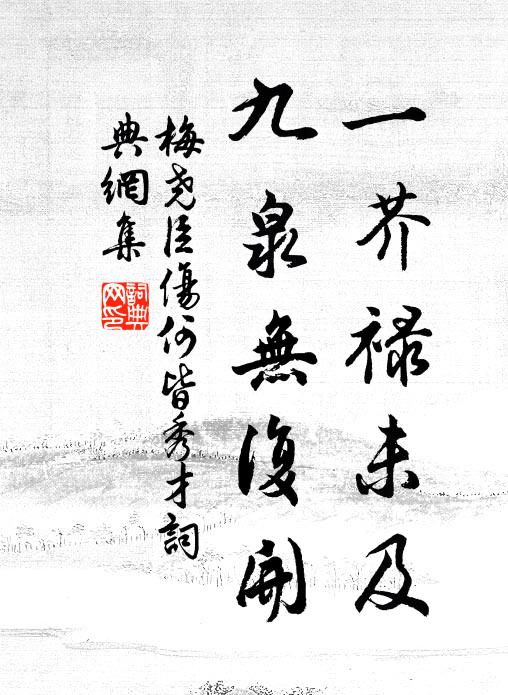 一芥禄未及
九泉無復開
梅堯臣傷何皆秀才詞
典網集
詞典
网印